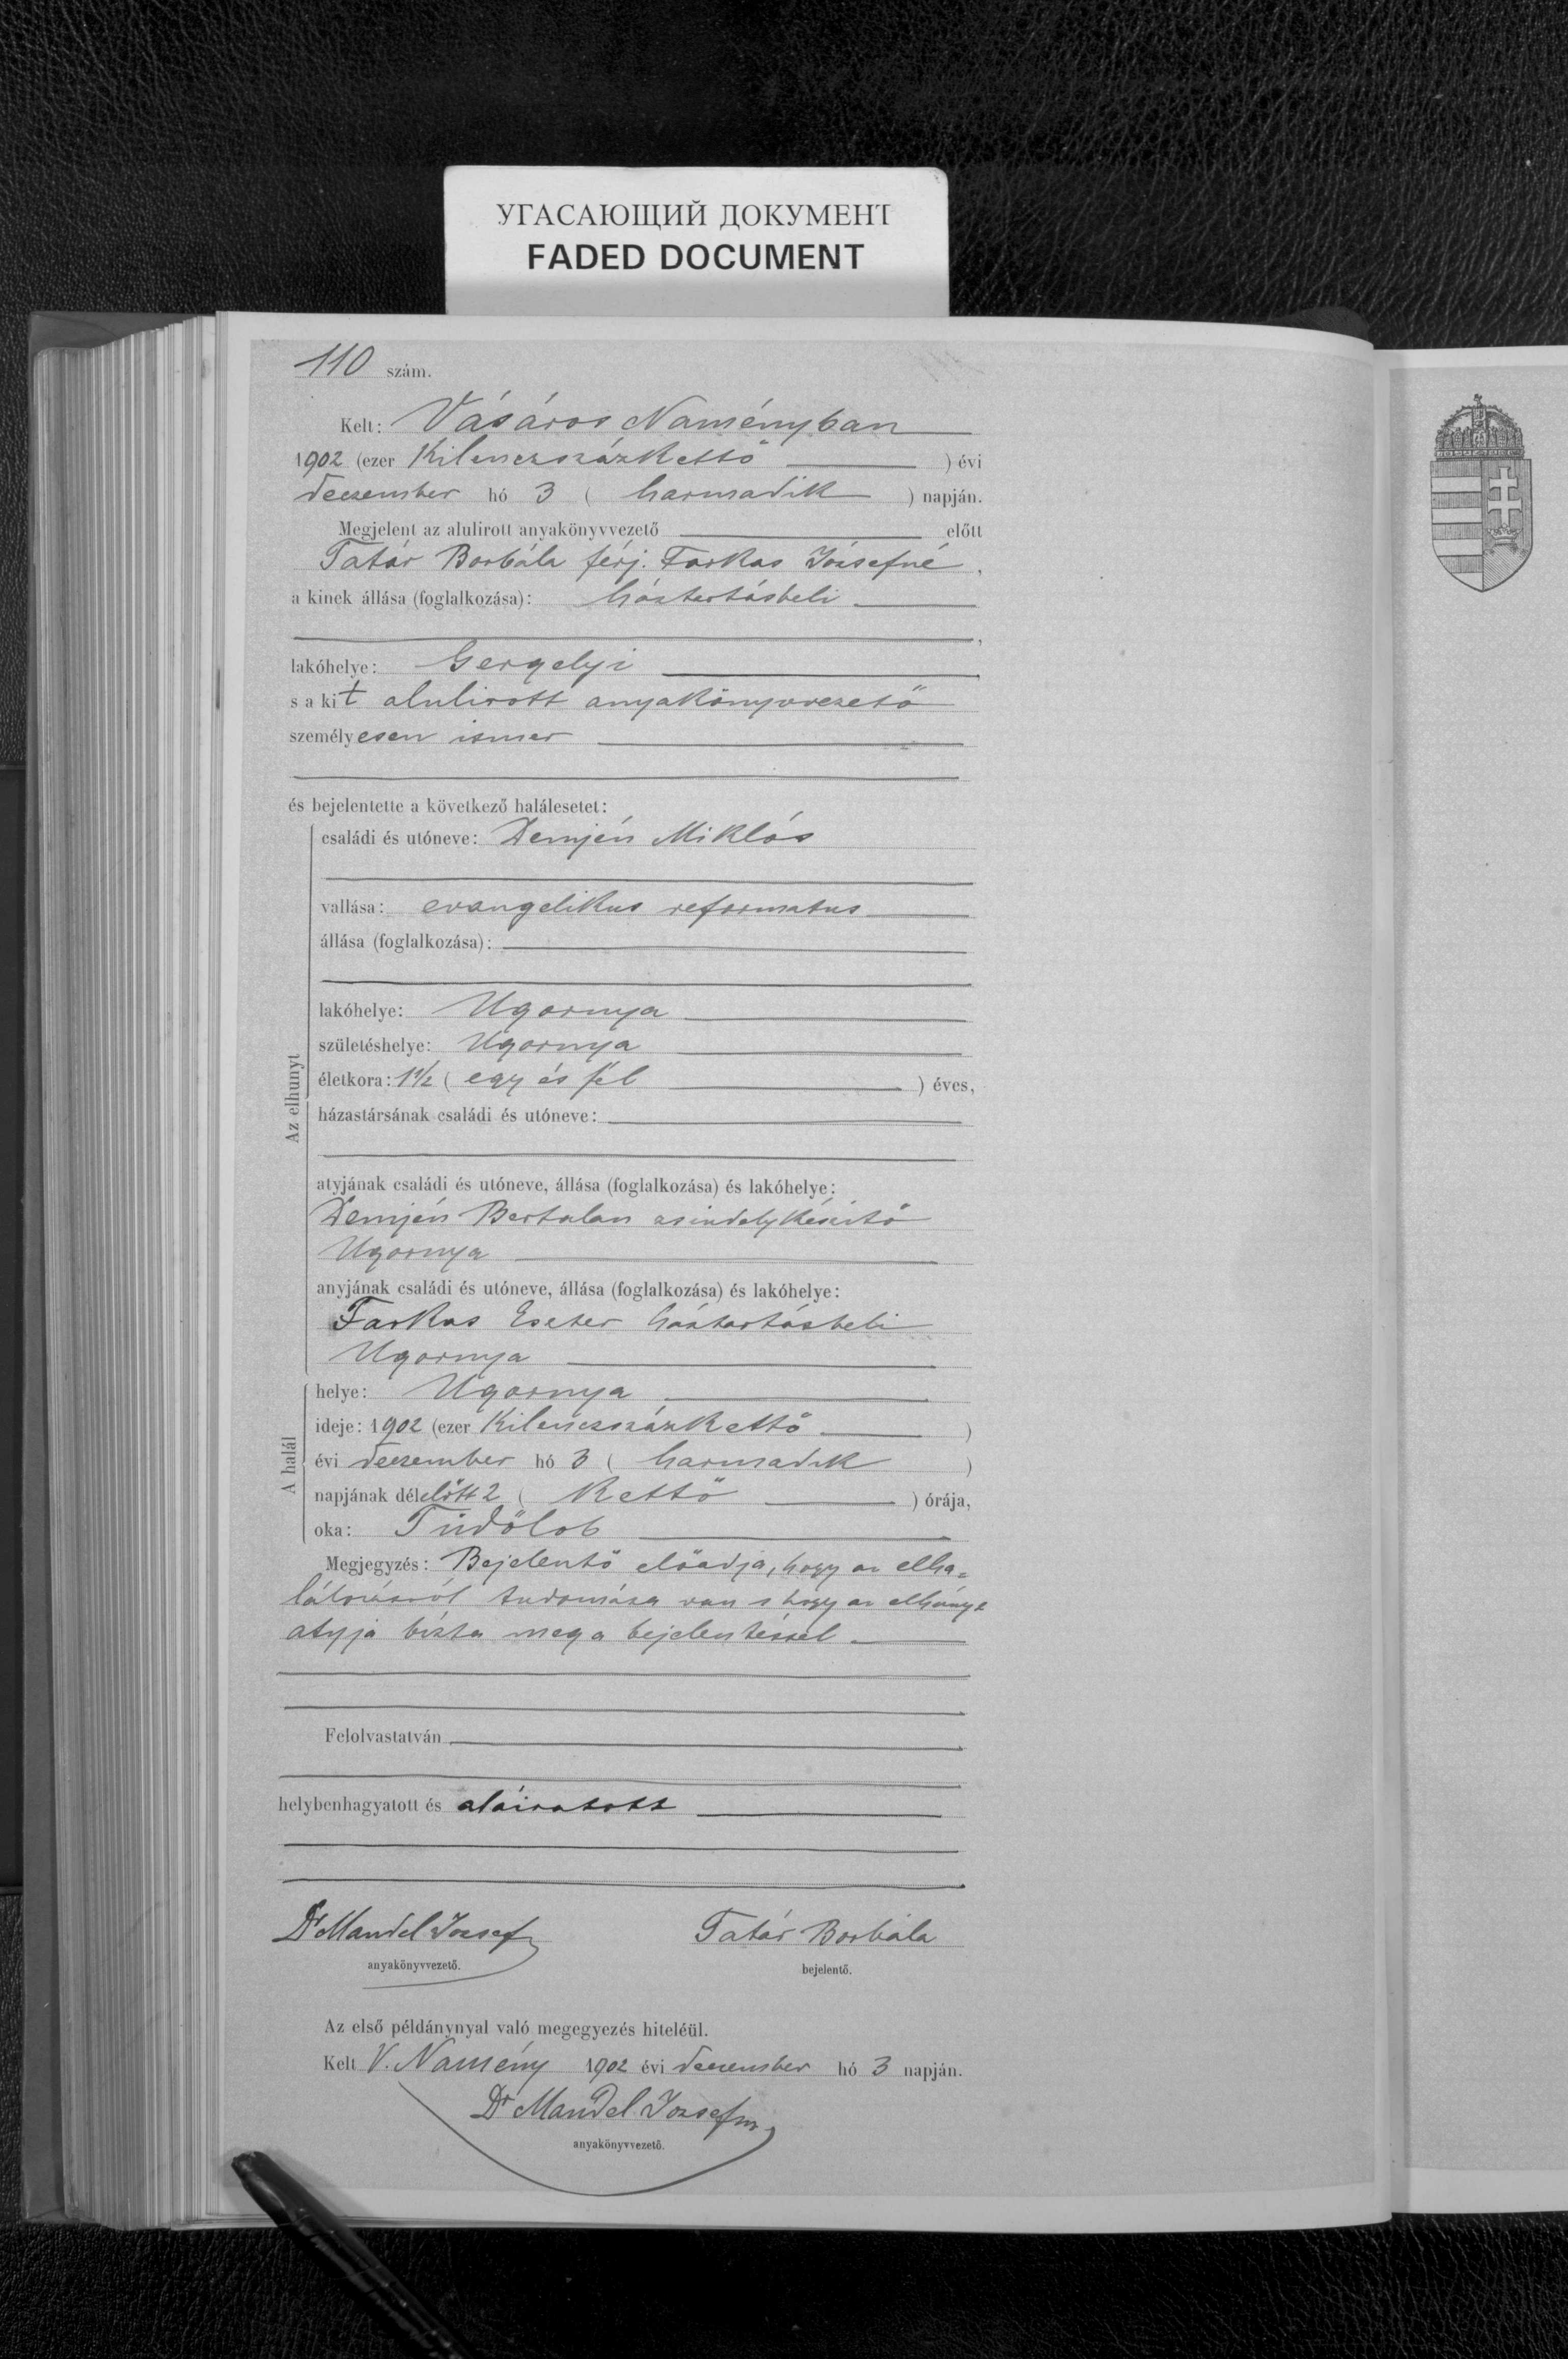 УГАСАЮЩИЙ ДОКУМЕНТ
FADED DOCUMENT
110 szám.
Kelt: Vásáros Naményban
1902 (ezer kilenczszázkettő ) évi
deczember hó 3 ( harmadik ) napján.
Megjelent az alulirott anyakönyvvezető előtt
Tatár Borbála férj. Farkas Józsefné,
a kinek állása (foglalkozása): háztartásbeli
,
lakóhelye: Gergelyi ,
s a kit alulirott anyakönyvvezető
személyesen ismer
és bejelentette a következő halálesetet:
Az elhunyt
családi és utóneve: Demjén Miklós
vallása: evangelikus reformatus
állása (foglalkozása):
lakóhelye: Ugornya
születéshelye: Ugornya
életkora: 1 1/2 ( egy és fél ) éves,
házastársának családi és utóneve:
atyjának családi és utóneve, állása (foglalkozása) és lakóhelye:
Demjén Bertalan zsindelykészitő
Ugornya
anyjának családi és utóneve, állása (foglalkozása) és lakóhelye:
Farkas Eszter háztartásbeli
Ugornya
A halál
helye: Ugornya
ideje: 1902 (ezer kilenczszázkettő )
évi deczember hó 3 ( harmadik )
napjának délelőtt 2 ( kettő ) órája,
oka: Tüdőlob
Megjegyzés: Bejelentő előadja, hogy az elha=
lálozásról tudomása van s hogy az elhunyt
atyja bízta meg a bejelentéssel
Felolvastatván
helybenhagyatott és aláiratott
Dr Mandel József
anyakönyvvezető.
Tatár Borbála
bejelentő.
Az első példánynyal való megegyezés hiteléül.
Kelt V. Namény 1902 évi deczember hó 3 napján.
Dr Mandel József
anyakönyvvezető.